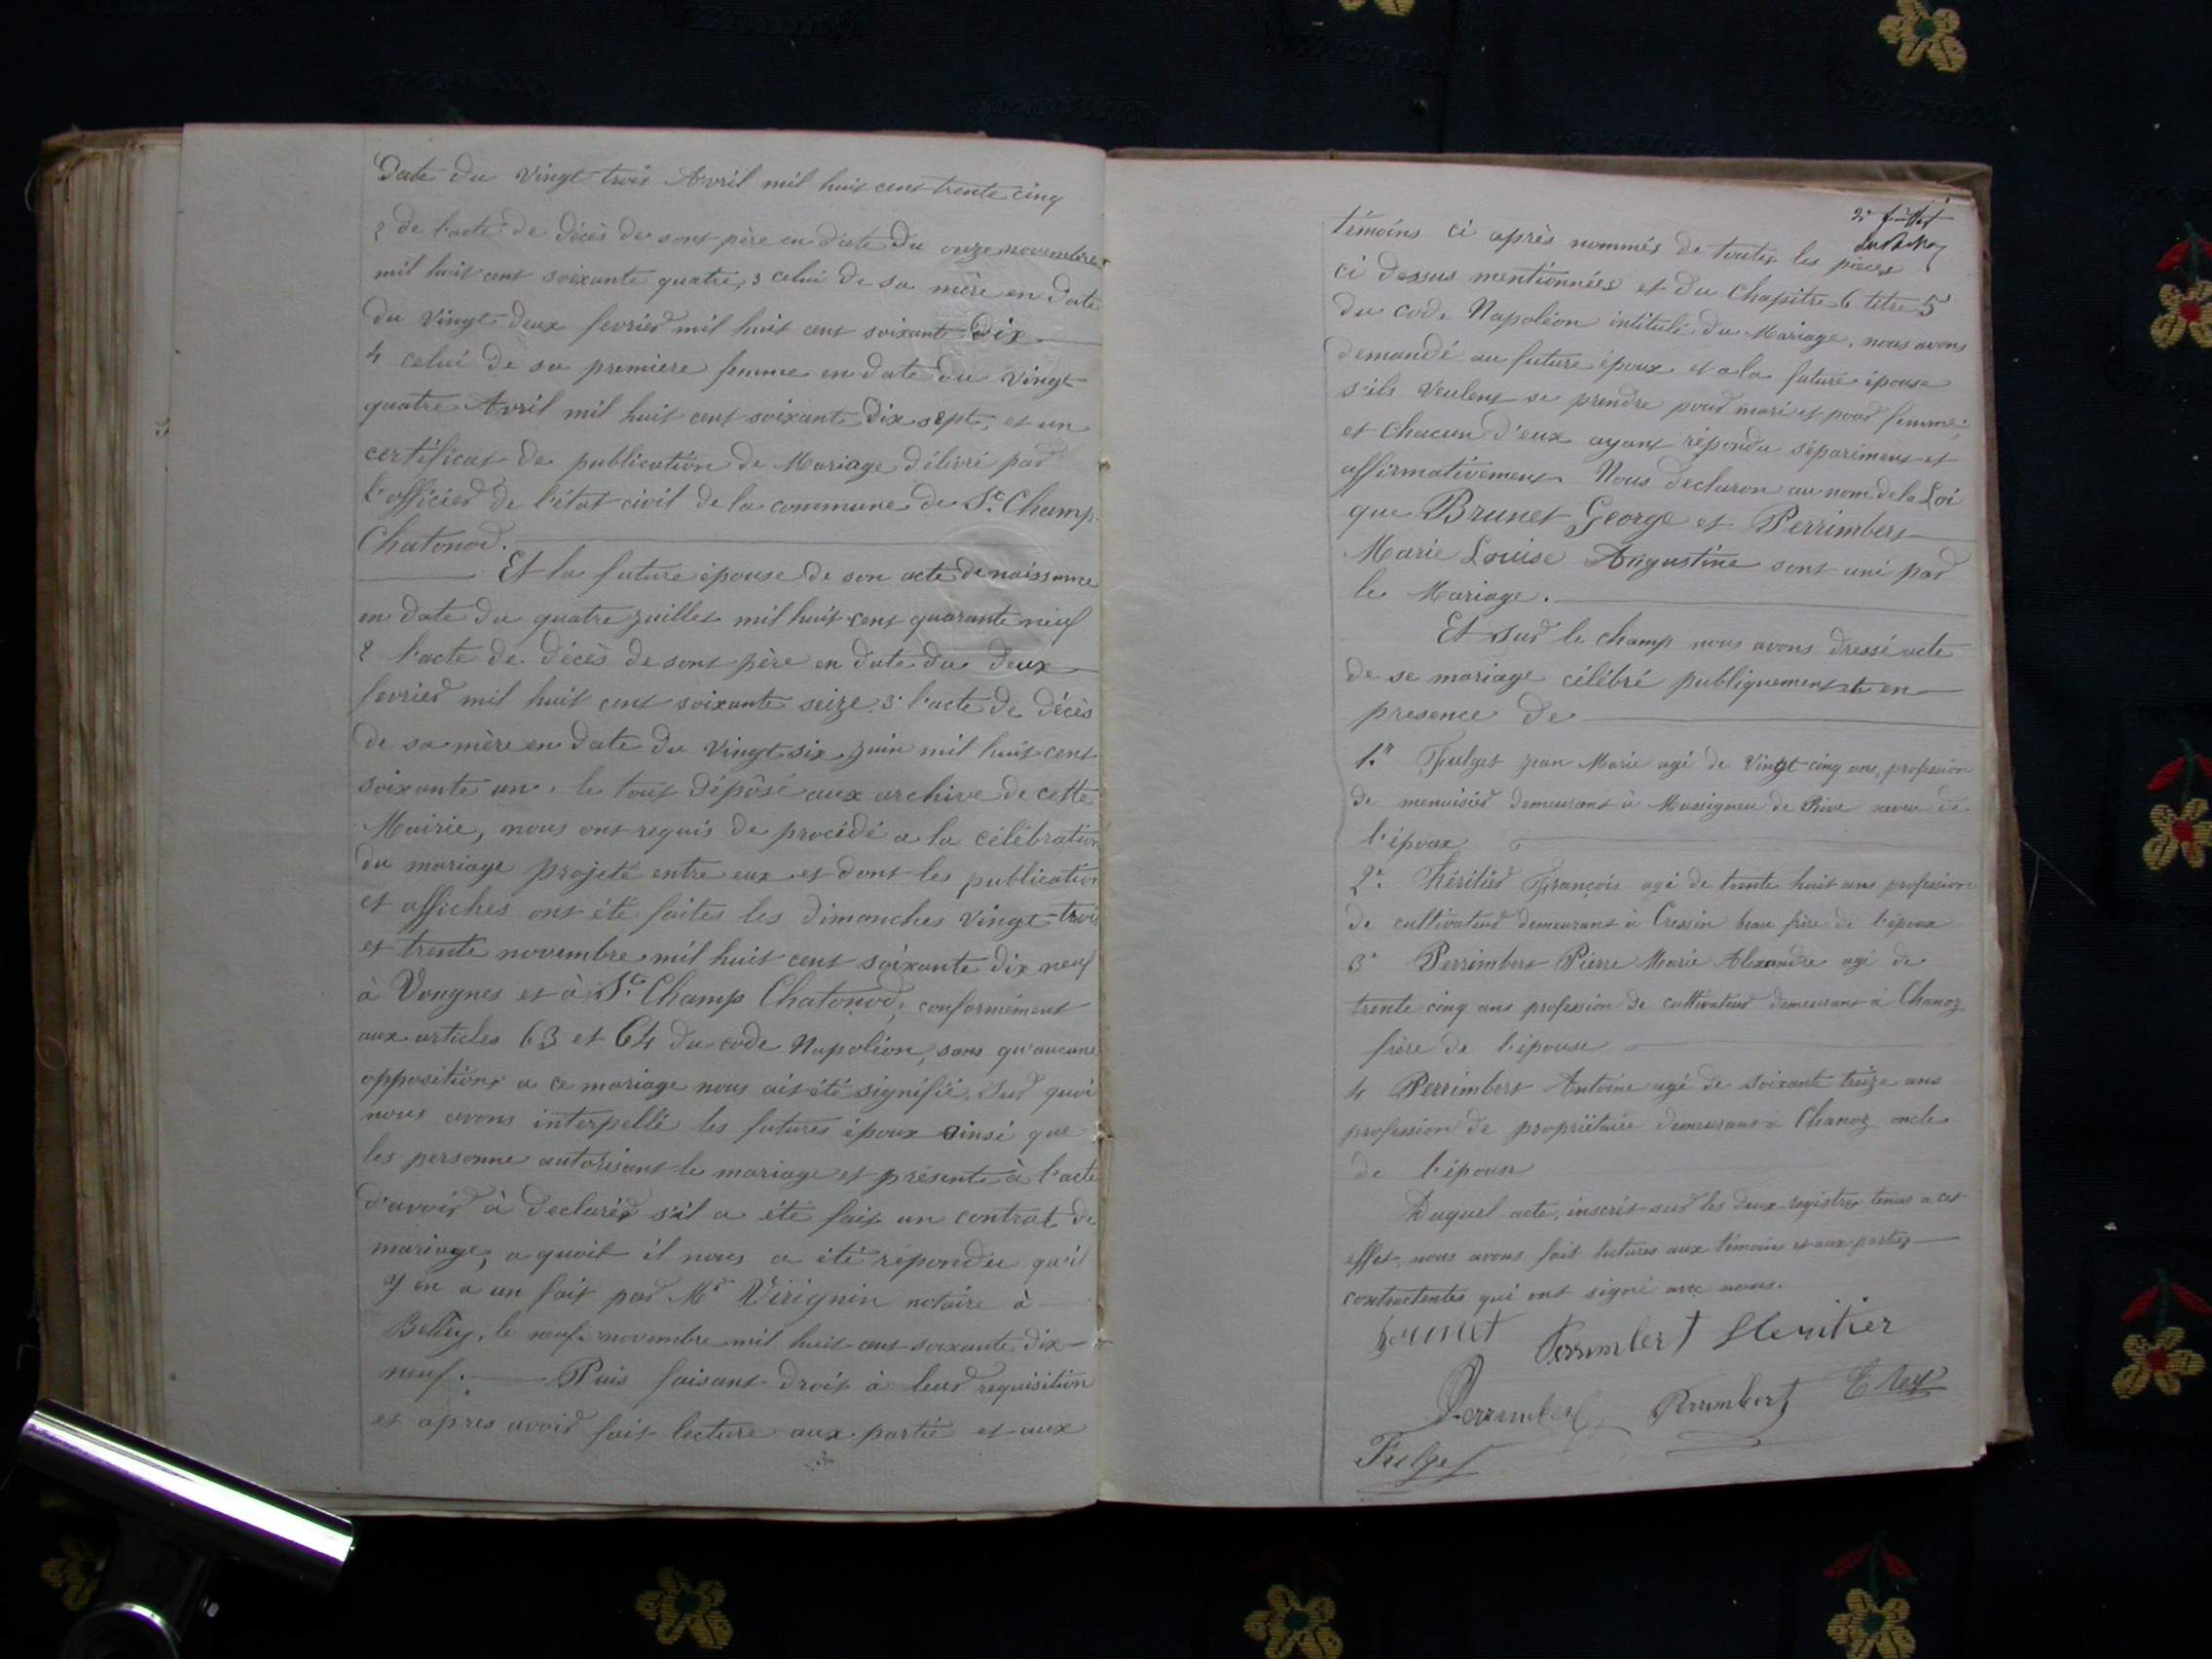 Date du vingt trois Avril mil huit cent trente cinq
2 de l'acte de décès de sont père en date du onze novembre
mil huit cent soixante quatre, 3 celui de sa mère en date
du vingt deux fevrier mil huit cent soixante dix
4 celui de sa premiere femme en date du vingt
quatre Avril mil huit cent soixante dix sept, et un
certificat de publication de Mariage délivré par
l'officier de l'état civil de la commune de St. Champ
Chatonod.
Et la future épouse de son acte de naissance
en date du quatre juillet mil huit cent quarante neuf
2 l'acte de décès de sont père en date du deux
fevrier mil huit cent soixante seize 3° l'acte de décès
de sa mère en date du vingt six juin mil huit cent
soixante un. le tout déposé aux archive de cette
Mairie, nous ont requis de procédé a la célébration
du mariage projeté entre eux et dont les publication
et affiches ont été faites les dimanches vingt trois
et trente novembre mil huit cent soixante dix neuf
à Vongnes et à St. Champ Chatonod, conformément
aux articles 63 et 64 du code Napoléon, sans qu'aucune
opposition a ce mariage nous ait été signifié. Sur quoi
nous avons interpellé les futures époux ainsi que
les personne autorisant le mariage et présente à l'acte
d'avoir à declarér s'il a été fait un contrat de
mariage, a quoit il nous a été répondu qu'il
y en a un fait par Me Virignin notaire à
Belley, le neuf novembre mil huit cent soixante dix
neuf. Puis faisant droit à leur requisition
et apres avoir fait lecture aux partie et aux
2e
témoins ci après nommés de toutes les pièces
ci dessus mentionnées et du Chapitre 6 titre 5
du code Napoléon intitulé du Mariage, nous avons
demandé au future époux et a la future épouse
s'ils veulent se prendre pour mari et pour femme;
et chacun d'eux ayant répondu séparément et
affirmativement. Nous declaron au nom de la Loi
que Brunet George et Perrimbert
Marie Louise Augustine sont uni par
le Mariage.
Et sur le champ nous avons dressé acte
de se mariage célébré publiquement en
presence de
1er Fulget jean Marie agé de vingt cinq ans, profession
de menuisier demeurant à Massigneu de Rive neveu de
l'époux
2e. Héritier François agé de trente huit ans profession
de cultivateur demeurant à Cressin beau frère de l'époux
3e Perrimbert Pierre Marie Alexandre agé de
trente cinq ans profession de cultivateur demeurant à Chanoz
frère de l'épouse
4 Perrimbert Antoine agé de soixante treize ans
profession de propriétaire demeurant à Chanoz oncle
de l'épouse
Duquel acte, inscrit sur les deux registres tenus a cet
effet, nous avons fait lectures aux témoins et aux parties
contractentes qui ont signé avec nous.
Brunet Perrimbert Heritier
Perrimbert Perrimbert
Fulget